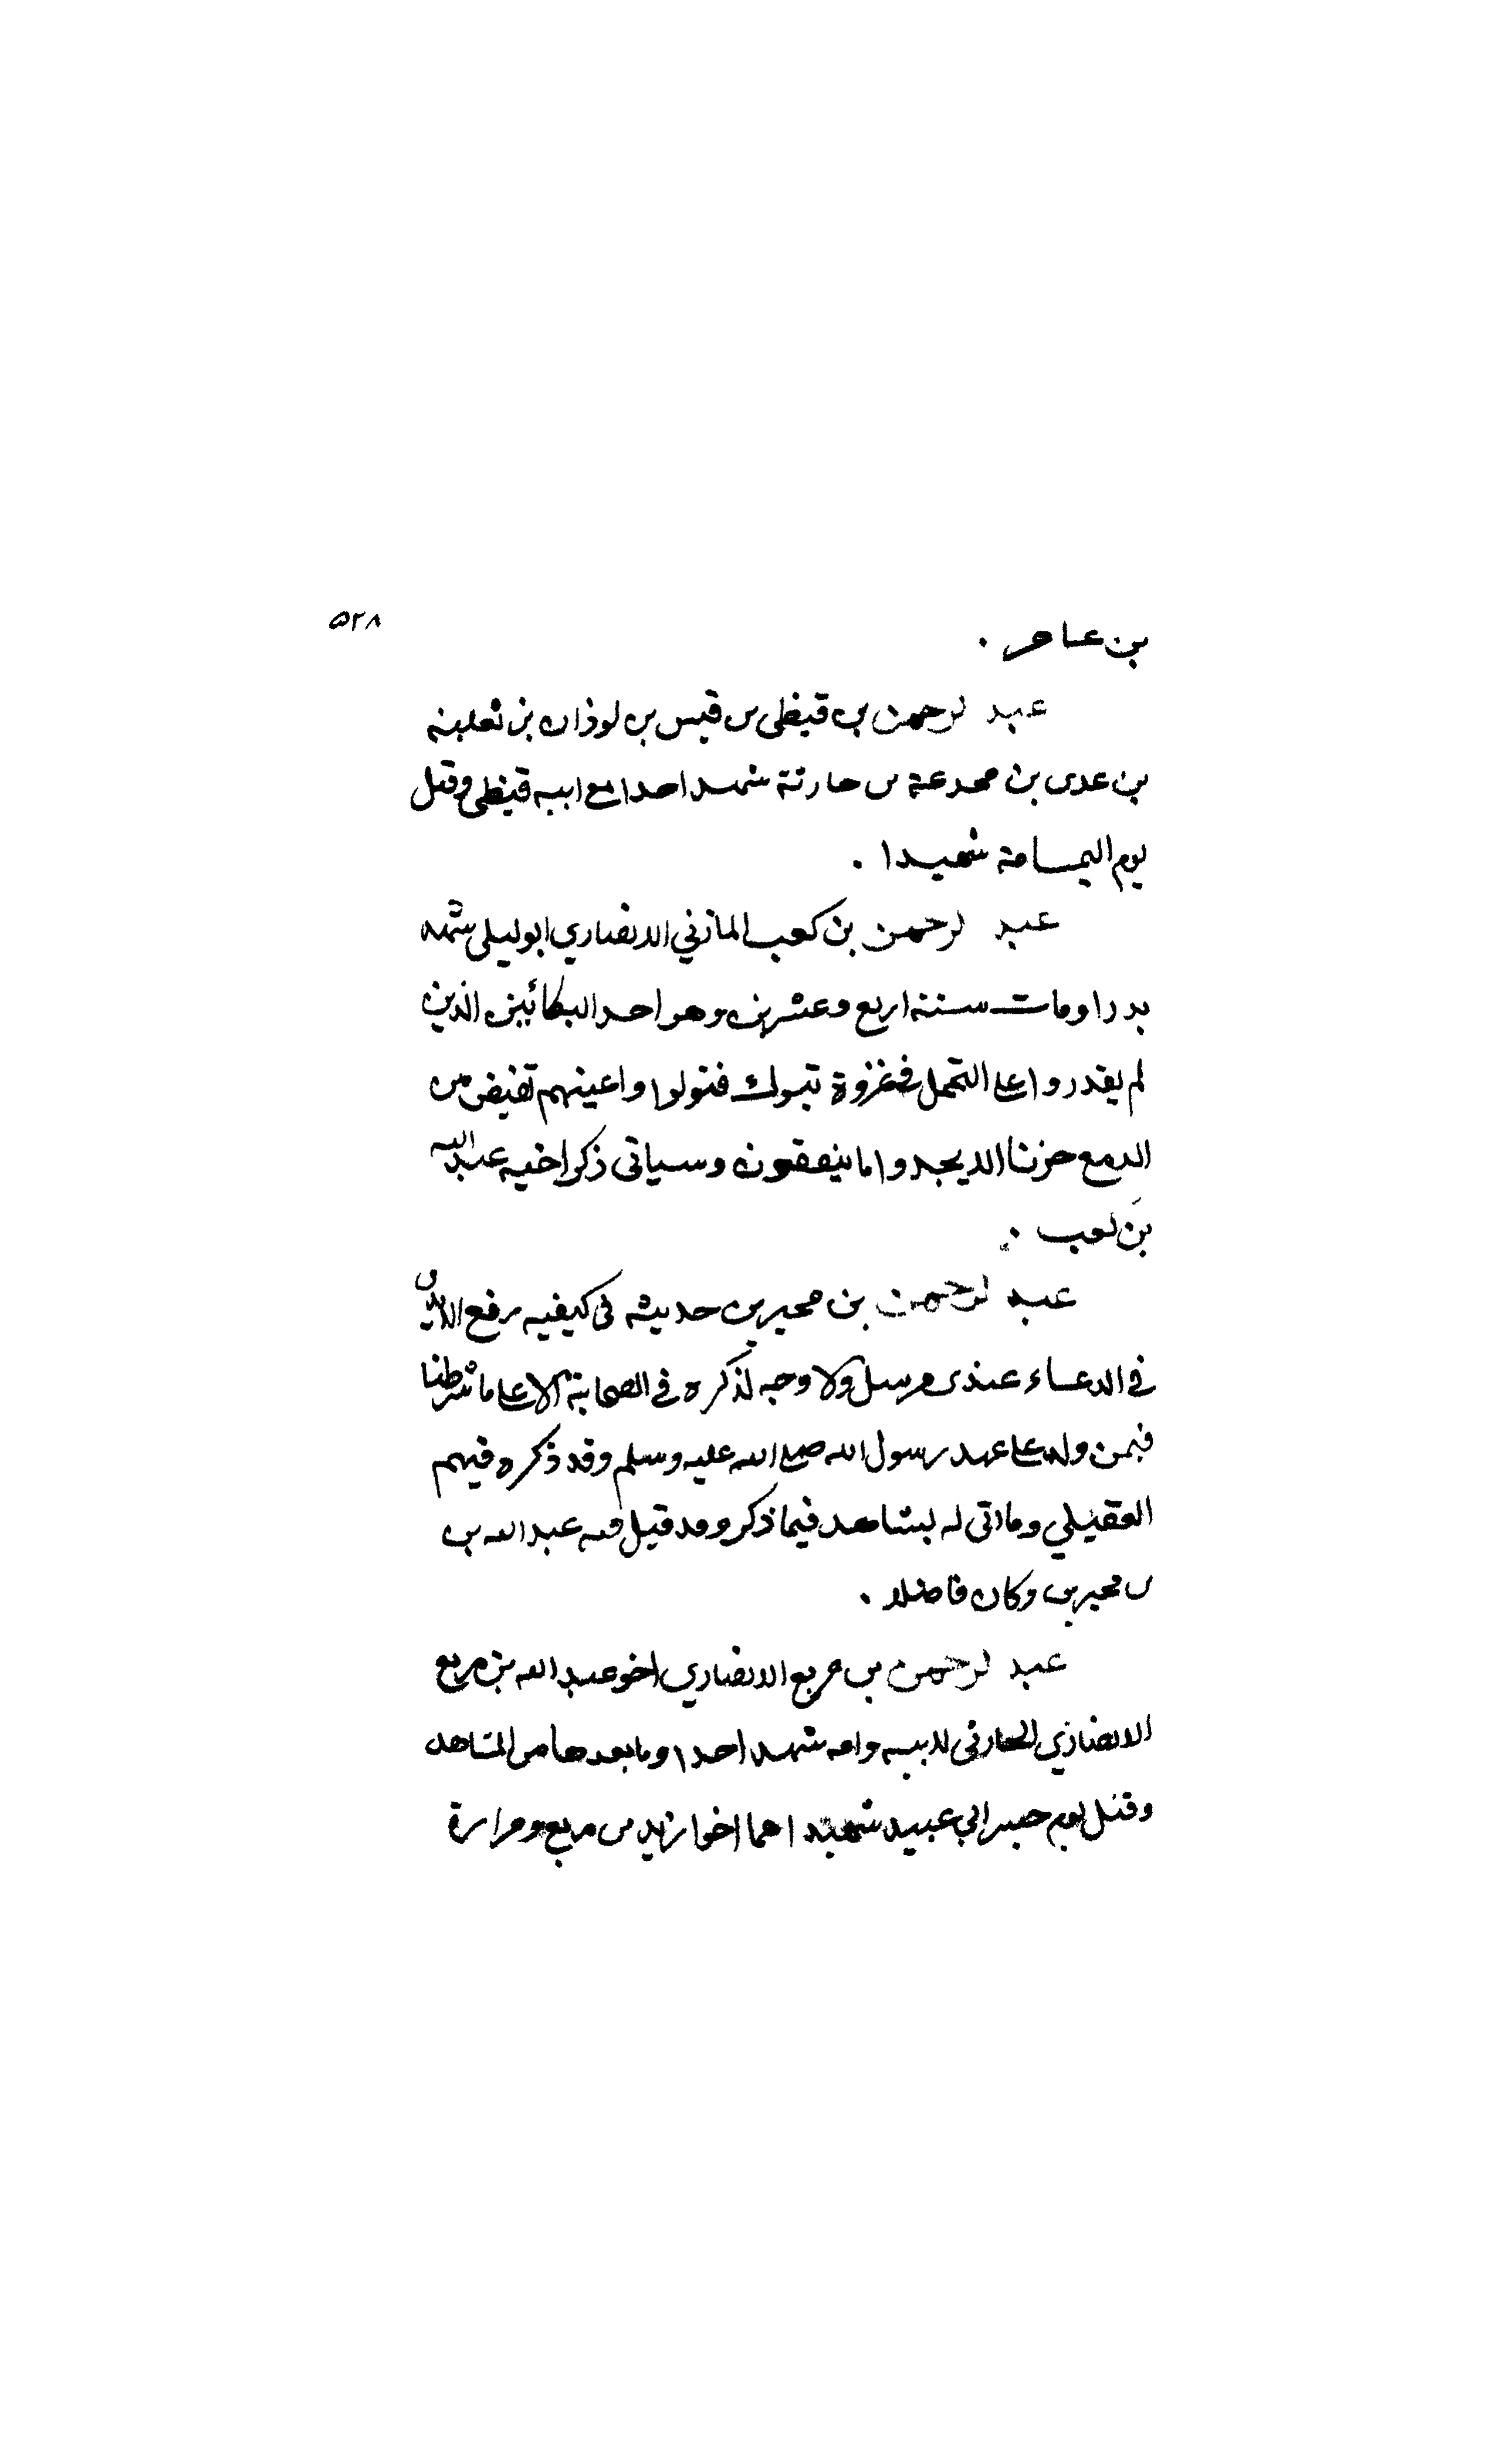 ٥٢٨
بن عامر .
عبد لرحمن بن قيظى بن قيس بن لوذان بن ثعلبة
بن عدى بن مجدعة بن حارثة شهد احدا مع ابيه قيظى وقتل
يوم اليمامة شهيدا .
عبد لرحمن بن كعب المازني الانصاري ابو ليلى شهد
بدرا ومات سنة اربع وعشرين وهو احد البكائين الذين
لم يقدروا على التحمل في غزوة تبوك فتولوا واعينهم تفيض من
الدمع حزنا الا يجدوا ما ينفقون وسياتى ذكر اخيه عبد الله
بن كعب .
عبد لرحمن بن محيريز حديثه في كيفيه رفع الايدى
في الدعاء عندى مرسل ولا وجه لذكره في الصحابة الا على ما شرطنا
فيمن ولد على عهد رسول الله صلى الله عليه وسلم وقد ذكره فيهم
العقيلي وما اتى له بشاهد فيما ذكر وقد قيل فيه عبد الله بن
بن محيريز وكان فاضلا .
عبد لرحمن بن مربع الانصاري اخو عبد الله بن مربع
الانصاري الحارثى لابيه وامه شهد احدا وما بعدها من المشاهد
وقتل يوم جسر ابي عبيد شهيدا هما اخوا زيد بن مربع ومرارة